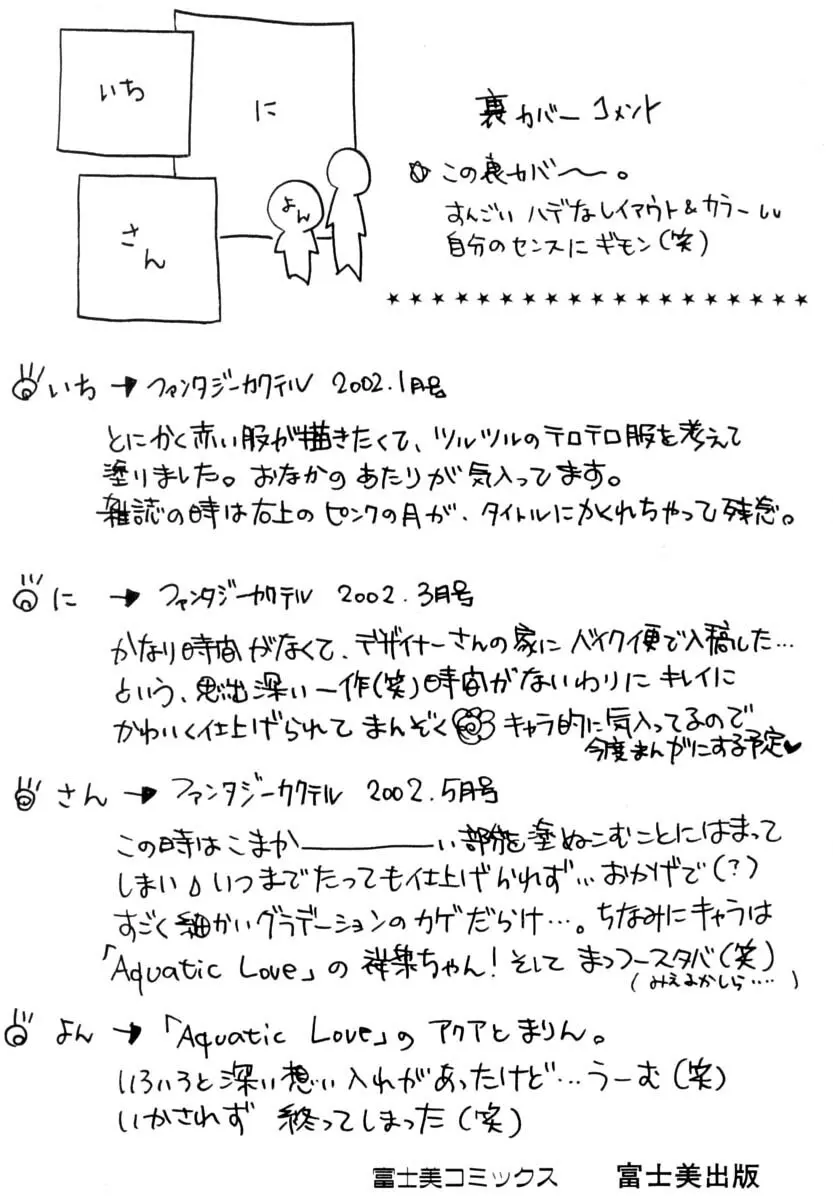 いち
に
さん
よん
裏カバーコメント
この裏カバ〜。
すんごいハデなレイアウト&カラーしい
自分のセンスにギモン(笑)
★★★★★★★★★★★★★★★★★★★
いち → ファンタジーカクテル 2002.1月号
とにかく赤い服が描きたくて、ツルツルのテロテロ服を考えて
塗りました。おなかのあたりが気入ってます。
雑誌の時は右上のピンクの月が、タイトルにかくれちゃって残念。
に → ファンタジーカクテル 2002.3月号
かなり時間がなくて、デザイナーさんの家にバイク便で入稿した…
という、思出深い一作(笑)時間がないわりにキレイに
かわいく仕上げられてまんぞく キャラ的に気入ってるので
今度まんがにする予定♥
さん → ファンタジーカクテル 2002.5月号
この時はこまか――――い部分を塗ぬこむことにはまって
しまい いつまでたっても仕上げられず… おかげで(?)
すごく細かいグラデーションのカゲだらけ…。ちなみにキャラは
「Aquatic Love」の ちゃん!そして まっつースタバ(笑)
(みえるかしら‥‥)
よん → 「Aquatic Love」のアクアとまりん。
いろいろと深い想い入れがあったけど…うーむ(笑)
いかされず 終ってしまった(笑)
富士美コミックス 富士美出版